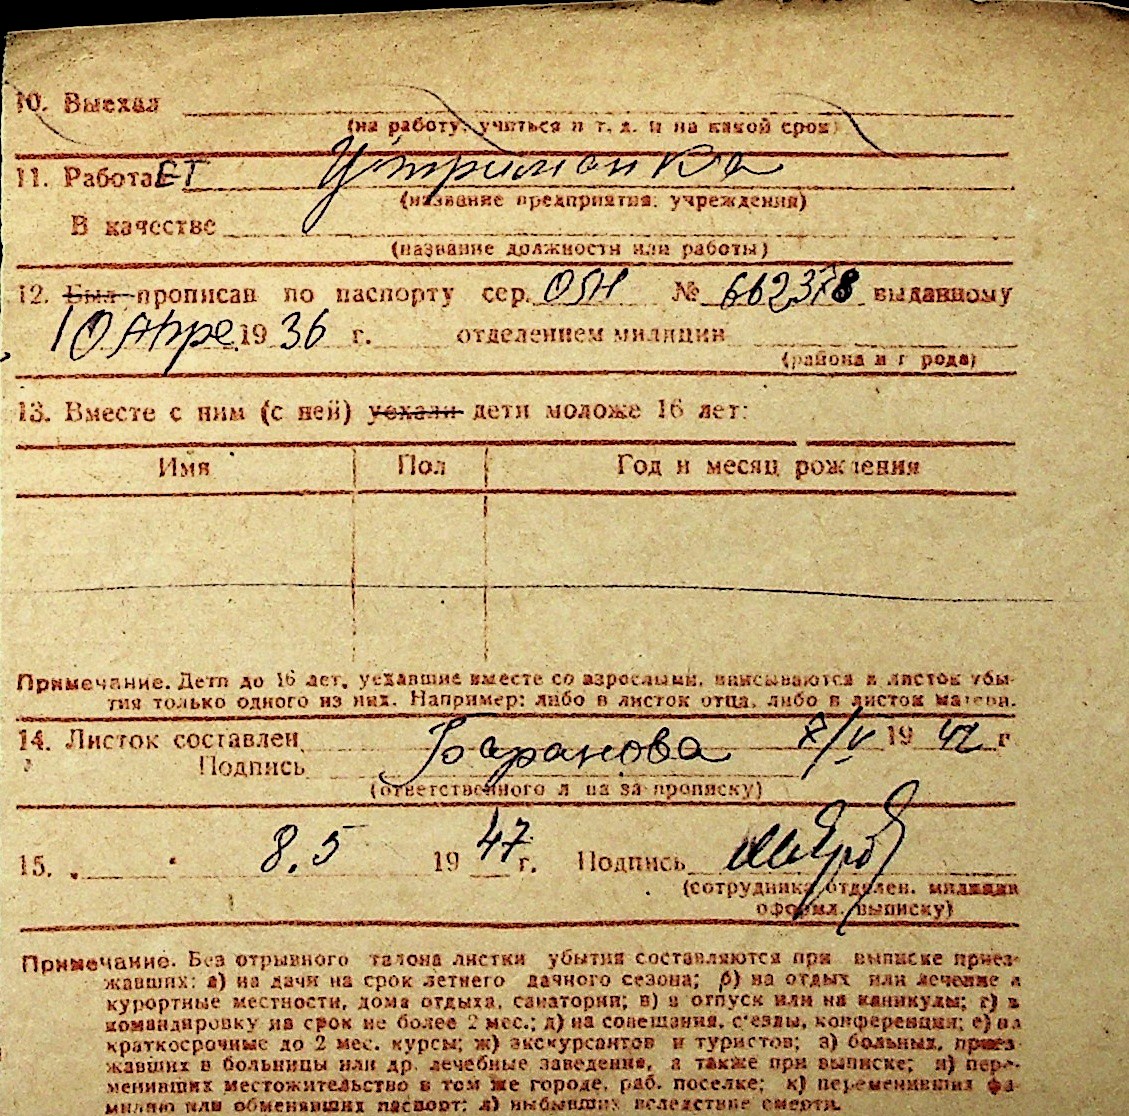 10. Выехал
(на работу, учиться и т. д. и на какой срок)
11. Работает Утриманка
(название предприятия, учреждения)
В качестве
(название должности или работы)
12. Был прописан по паспорту сер. ОЯН № 662378 выданному
10 Апре 1936 г. отделением милиции
(района и г рода)
13. Вместе с ним (с ней) уехали дети моложе 16 лет:
Имя Пол Год и месяц рождения
Примечание. Дети до 16 лет, уехавшие вместе со взрослыми, вписываются в листок убы-
тия только одного из них. Например: либо в листок отца, либо в листок матери.
14. Листок составлен 7/V 19 г
Подпись Баранова
(ответственного л ца за прописку)
15. 8.5 1947 г. Подпись
(сотрудника отделен. милиции
оформл. выписку)
Примечание. Без отрывного талона листки убытия составляются при выписке приез-
жавших: а) на дачи на срок летнего дачного сезона; б) на отдых или лечение в
курортные местности, дома отдыха, санатории; в) в отпуск или на каникулы; г) в
командировку на срок не более 2 мес.; д) на совещания, с'езды, конференции; е) на
краткосрочные до 2 мес. курсы; ж) экскурсантов и туристов; з) больных, приез-
жавших в больницы или др. лечебные заведения, а также при выписке; и) пере-
менивших местожительство в том же городе, раб. поселке; к) переменивших фа-
милию или обменявших паспорт; л) выбывших вследствие смерти.